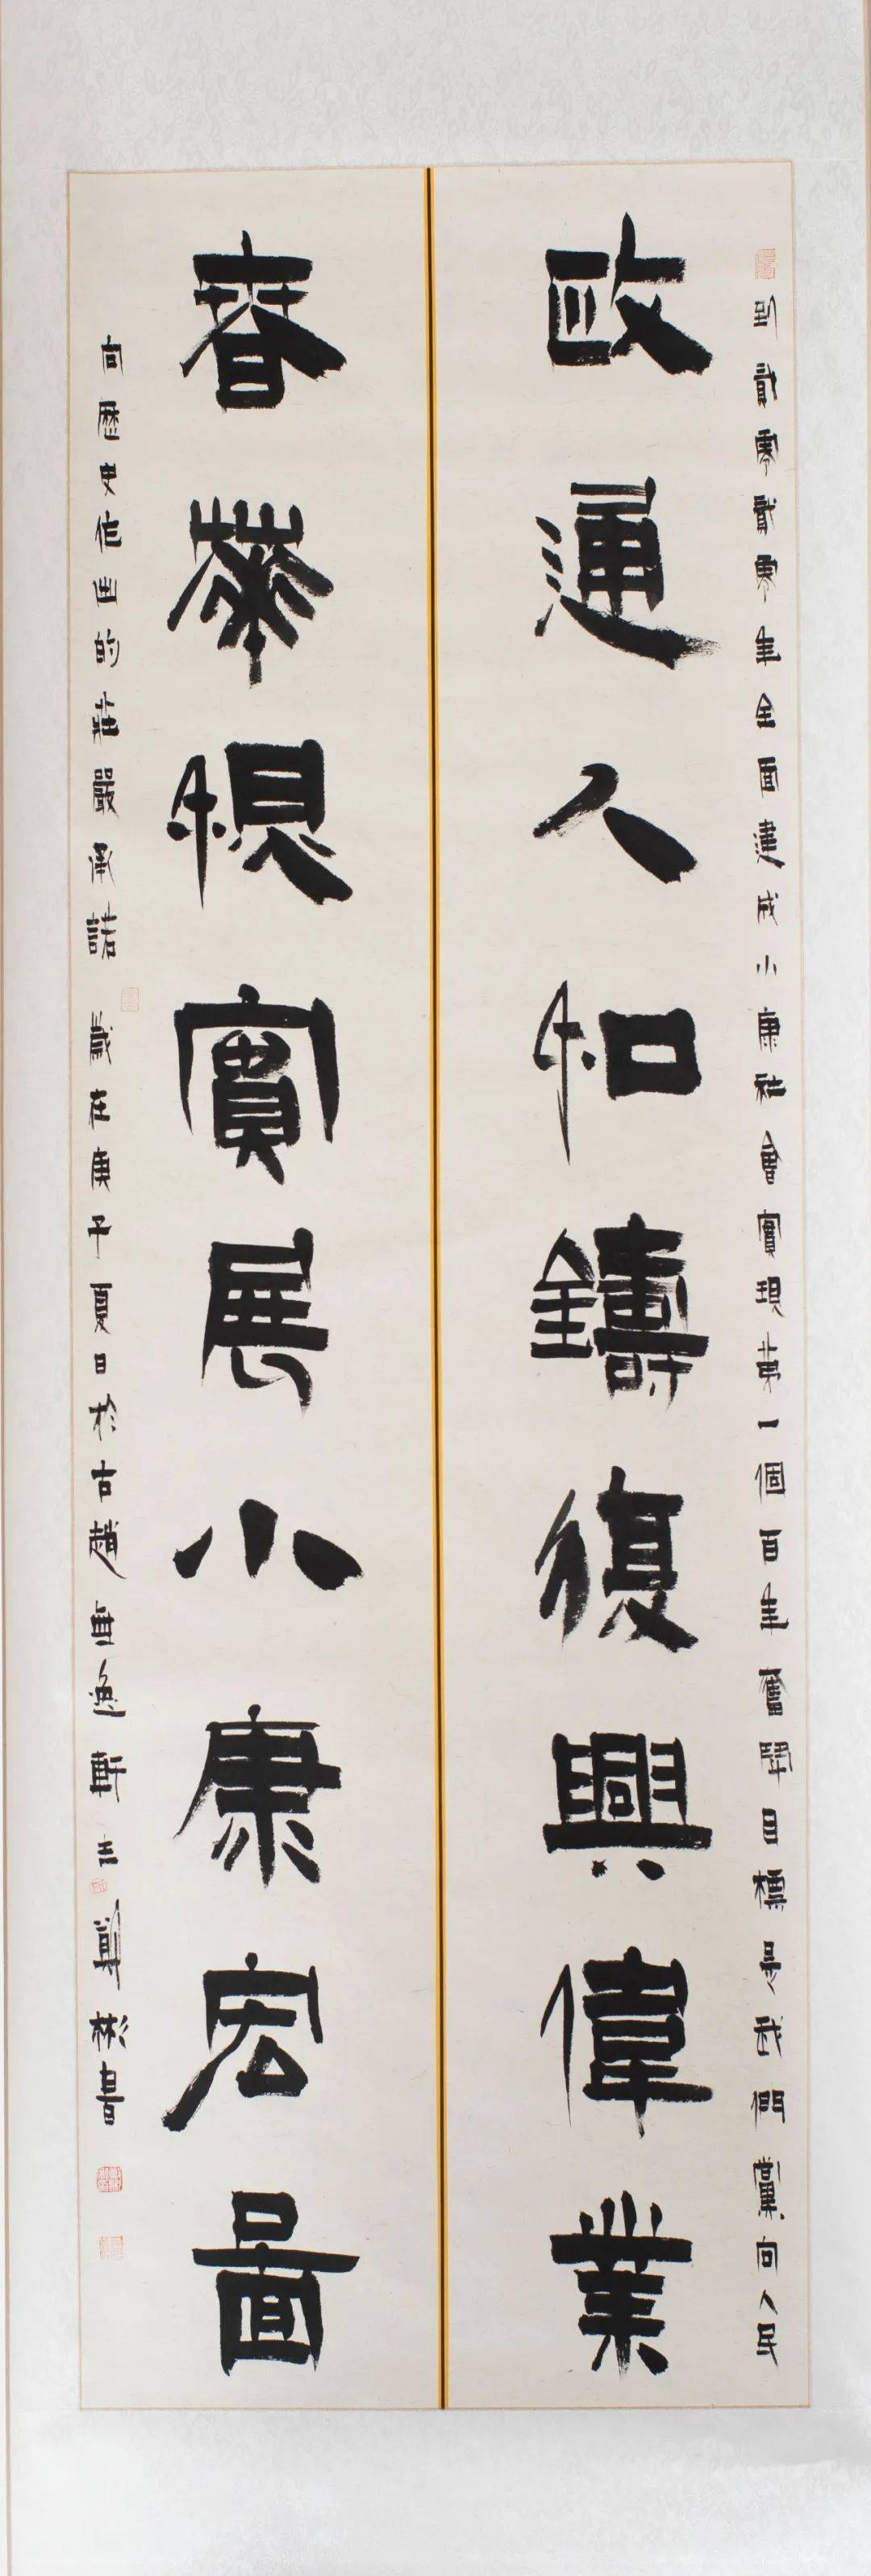 到貳零貳零年全面建成小康社會實現第一個百年奮鬥目標是我們黨向人民
政通人和鑄復興偉業
春華秋實展小康宏圖
向歷史作出的莊嚴承諾 歲在庚子夏日於古趙無逸軒 王 彬書